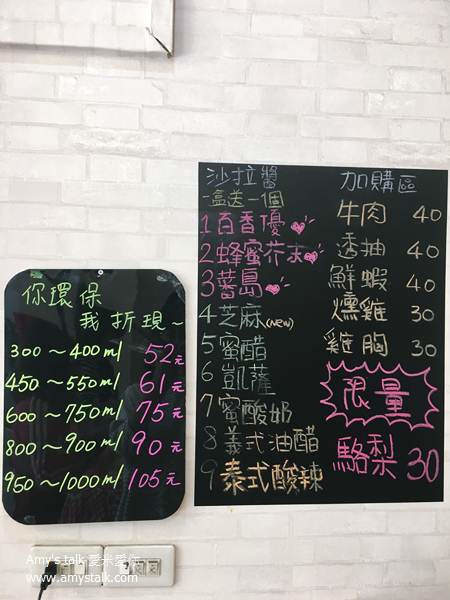 你環保
我折現~
300~400ml 52元
450~550ml 61元
600~750ml 75元
800~900ml 90元
950~1000ml 105元
沙拉醬
一盒送一個
1百香優
2蜂蜜芥末
3蕃島
4芝麻(new)
5蜜醋
6凱薩
7蜜酸奶
8義式油醋
9泰式酸辣
加購區
牛肉 40
透抽 40
鮮蝦 40
燻雞 30
雞胸 30
限量
駱梨 30
Amy's talk 愛米愛作
www.amystalk.com